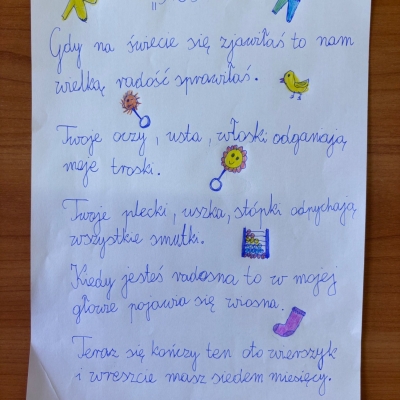 Gdy na świecie się zjawiłaś to nam
wielką radość sprawiłaś.
Twoje oczy, usta, włoski odganiają
moje troski.
Twoje plecki, uszka, stópki odpychają
wszystkie smutki.
Kiedy jesteś radosna to w mojej
głowie pojawia się wiosna.
Teraz się kończy ten oto wierszyk
i wreszcie masz siedem miesięcy.